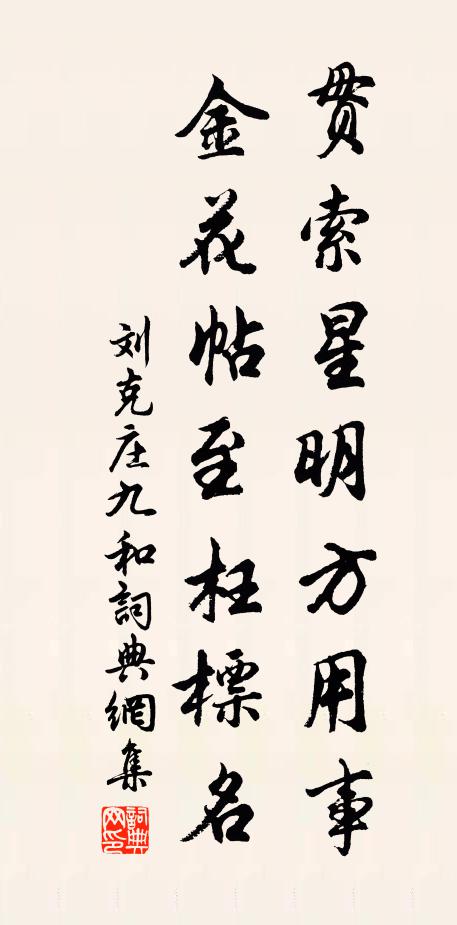 贯索星明方用事
金花帖至枉標名
刘克庄九和詞典網集
詞典网印